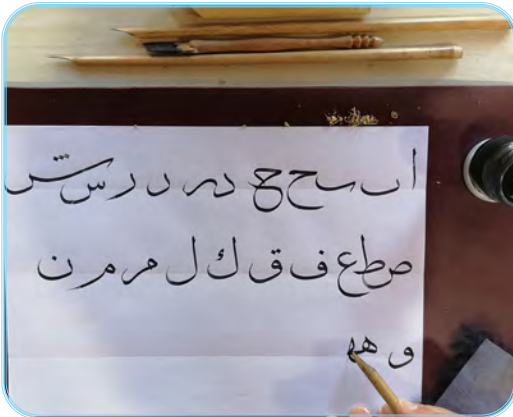 ا ٮ ح ح د ر س ش
ص ط ع ف ق ك ل م م ن
و ه ه